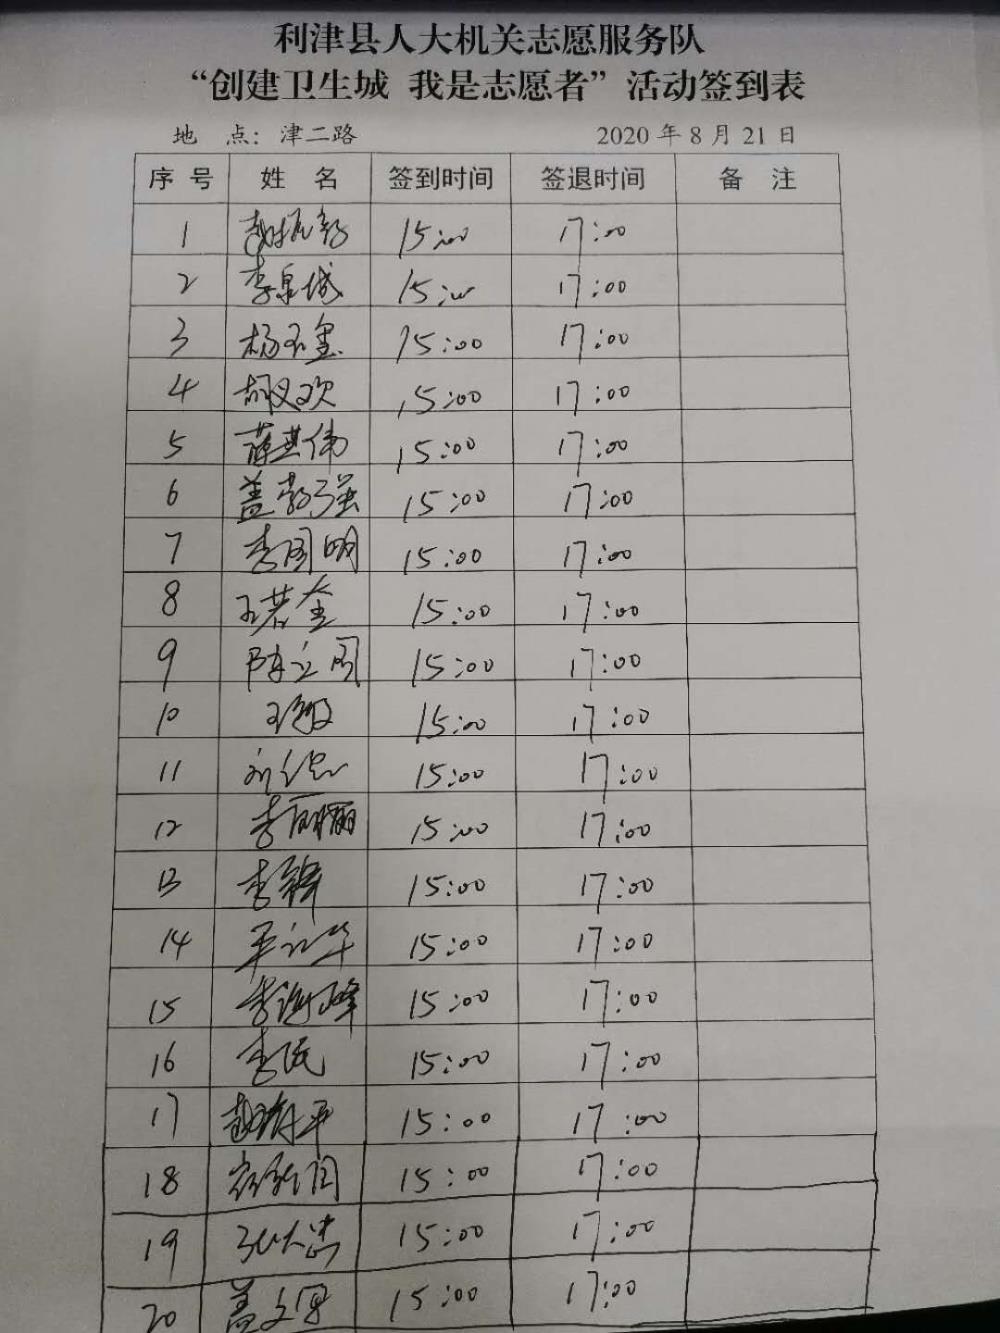 利津县人大机关志愿服务队
“创建卫生城 我是志愿者”活动签到表
地 点：津二路 2020年8月21日
序号 姓名 签到时间 签退时间 备注
1 15:00 17:00
2 李泉城 15:00 17:00
3 杨玉玺 15:00 17:00
4 胡义欢 15:00 17:00
5 薛其伟 15:00 17:00
6 盖 强 15:00 17:00
7 李国明 15:00 17:00
8 王若金 15:00 17:00
9 陈立国 15:00 17:00
10 王 15:00 17:00
11 刘 15:00 17:00
12 李丽丽 15:00 17:00
13 李 15:00 17:00
14 15:00 17:00
15 李 峰 15:00 17:00
16 李民 15:00 17:00
17 赵 平 15:00 17:00
18 15:00 17:00
19 大忠 15:00 17:00
20 盖文 15:00 17:00